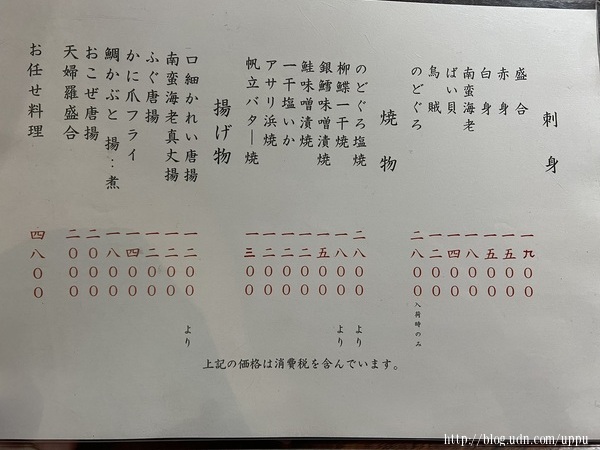 刺身
盛合 一九〇〇
赤身 一五〇〇
白身 一五〇〇
南蛮海老 一八〇〇
ばい貝 一四〇〇
烏賊 一二〇〇
のどぐろ 二八〇〇 入荷時のみ
焼物
のどぐろ塩焼 二八〇〇より
柳鰈一干焼 一八〇〇より
銀鱈味噌漬焼 一五〇〇
鮭味噌漬焼 一二〇〇
一干塩いか 一二〇〇
アサリ浜焼 一二〇〇
帆立バター焼 一三〇〇
揚げ物
口細かれい唐揚 一二〇〇より
南蛮海老真丈揚 一二〇〇
ふぐ唐揚 一二〇〇
かに爪フライ 一四〇〇
鯛かぶと 揚…煮 一八〇〇
おこぜ唐揚 二〇〇〇
天婦羅盛合 二〇〇〇
お任せ料理 四八〇〇
上記の価格は消費税を含んでいます。
http://blog.udn.com/uppu